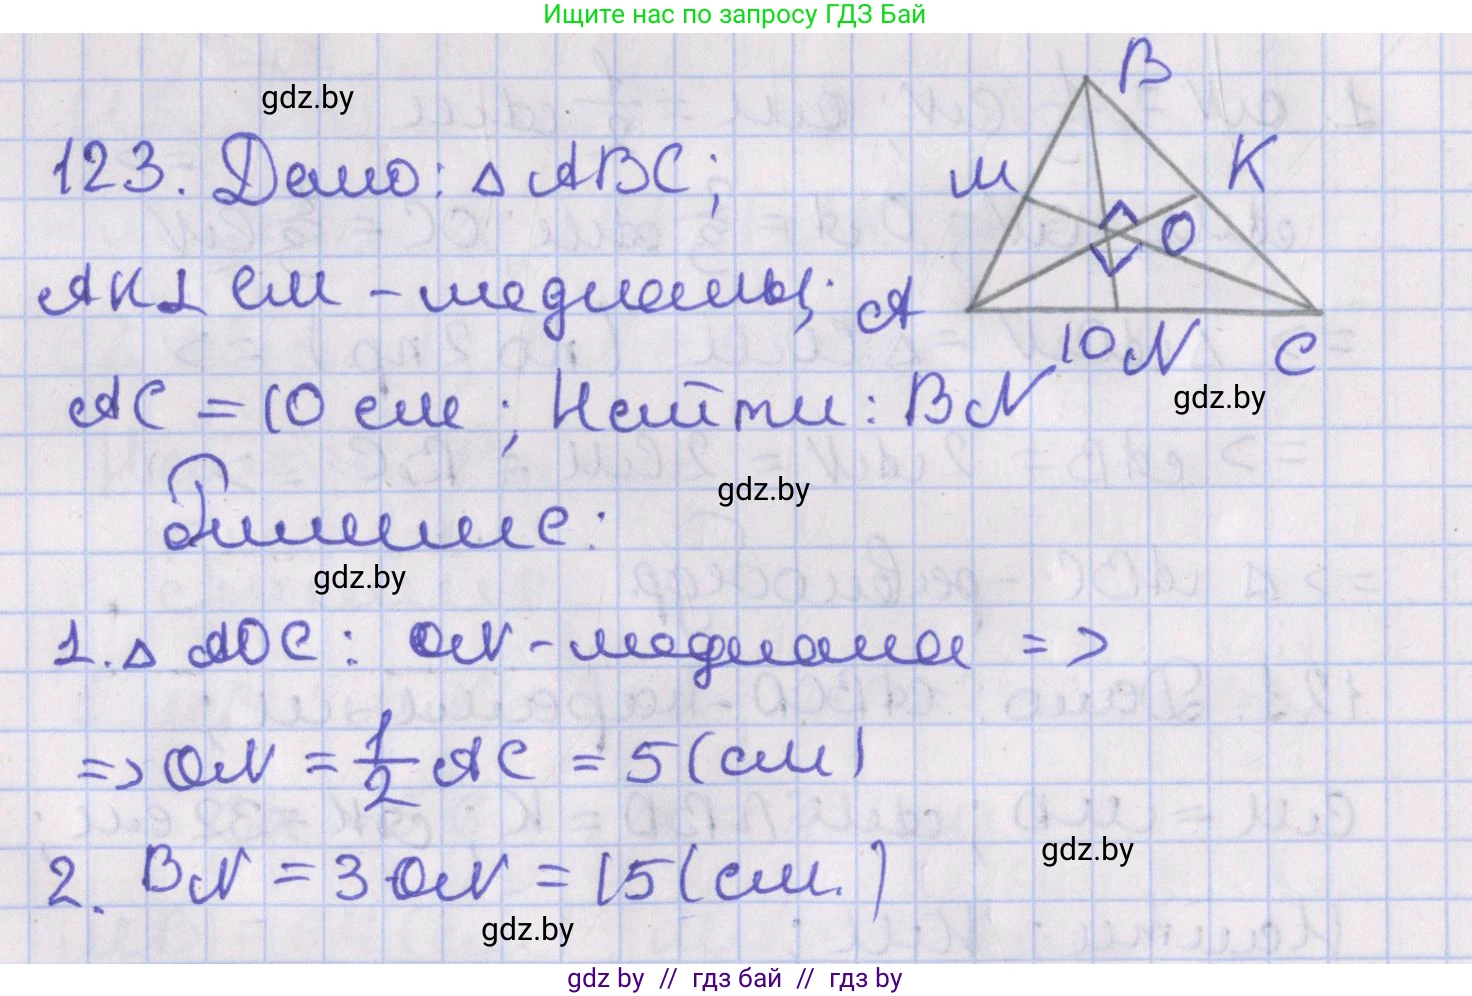 Ищите нас по запросу ГДЗ Бай
gdz.by
B
123. Дано: △ ABC;
M
K
O
AK ⊥ CM - медианы;
A
10 N
C
gdz.by
AC = 10 см; Найти: BN
gdz.by
Решение:
gdz.by
1. △ AOC: ON - медиана =>
=> ON = 1/2 AC = 5 (см)
gdz.by
2. BN = 3 ON = 15 (см.)
gdz.by
gdz by // гдз бай // гдз by